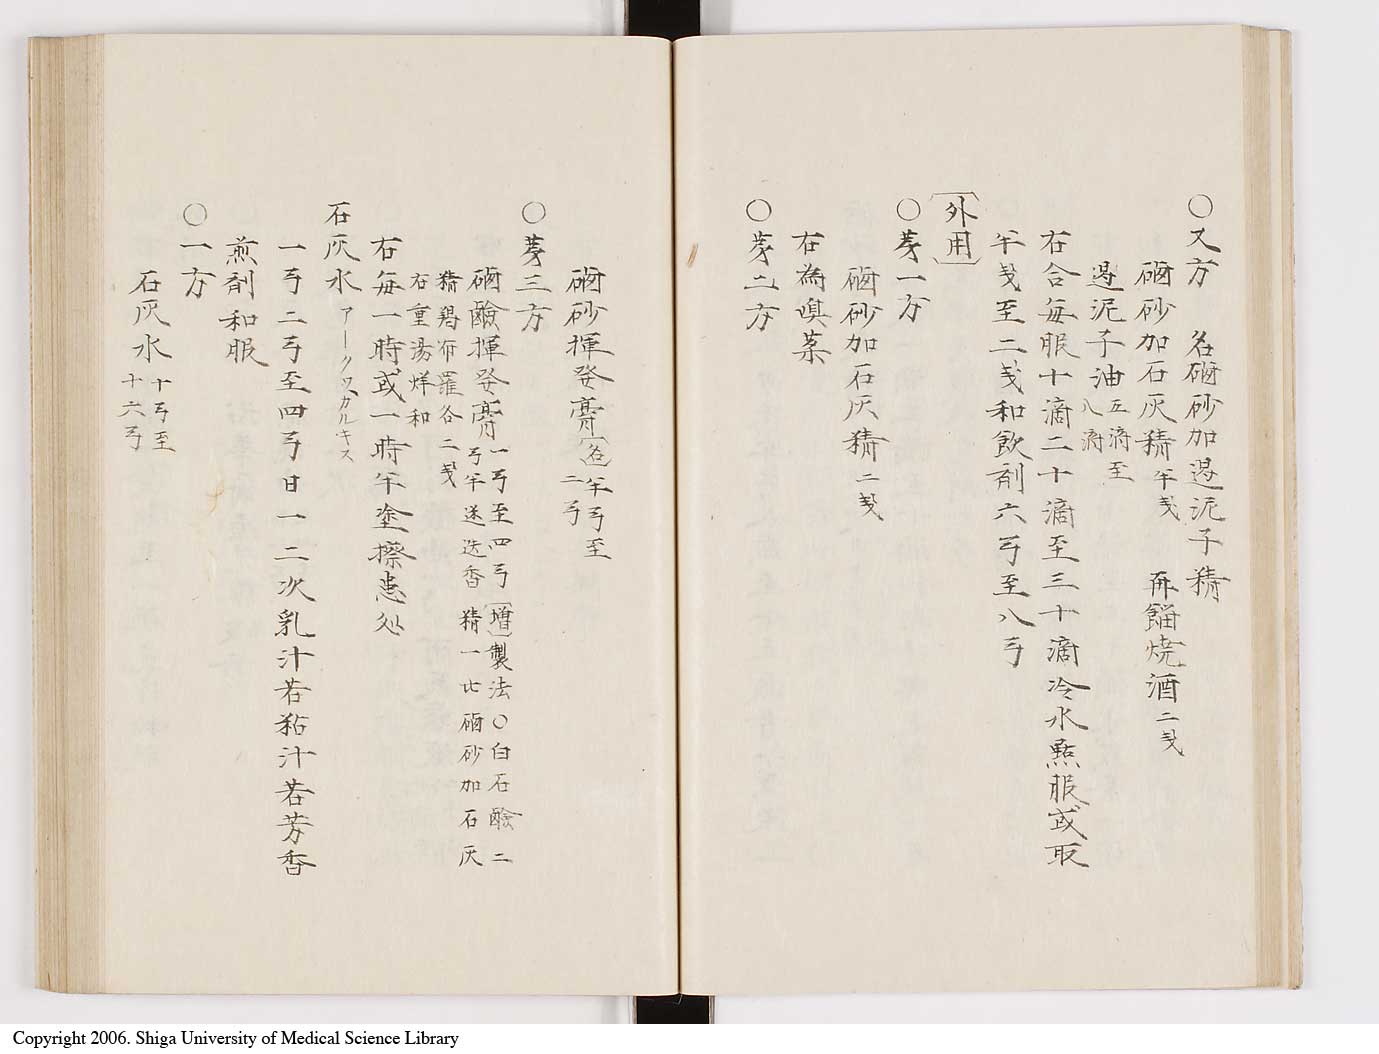 ○又方 名硇砂加遏泥子精
硇砂加石灰精半戋 再餾焼酒二戋
遏泥子油五滴至八滴
右合毎服十滴二十滴至三十滴冷水點服或取
半戋至二戋和飲剤六弓至八弓
〔外用〕
○㐧一方
硇砂加石灰精二戋
右為嗅薬
○㐧二方
硇砂揮発膏〔名〕半弓至二弓
○㐧三方
硇鹸揮発膏一弓至四弓〔増〕製法○白石鹸二
弓半迷迭香精一匕硇砂加石灰
精鶏布羅各二戋
右重湯烊和
右毎一時或一時半塗擦患処
石灰水 アークワカルキス
一弓二弓至四弓日一二次乳汁若粘汁若芳香
煎剤和服
○一方
石灰水十弓至十六弓
Copyright 2006. Shiga University of Medical Science Library